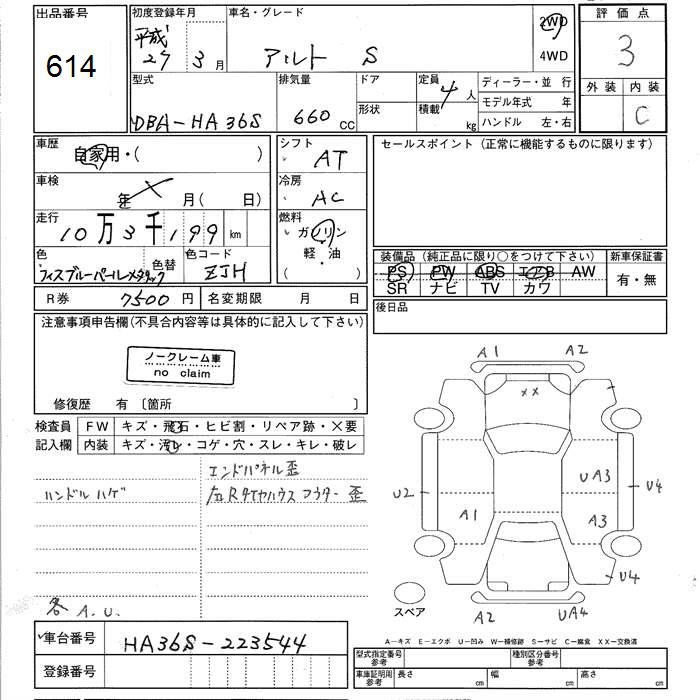 出品番号
614
初度登録年月
平成
27 3月
車名・グレード
アルト S
2WD
4WD
評価点
3
外装 内装
C
型式
DBA-HA36S
排気量
660 cc
ドア
形状
定員
4人
積載
kg
ディーラー・並 行
モデル年式 年
ハンドル 左・右
車歴
自家用・( )
シフト
AT
セールスポイント(正常に機能するものに限ります)
車検
年 月( 日)
冷房
AC
走行
10万3千199km
燃料
ガソリン
軽・油
( )
色
色替
色コード
ZJH
装備品(純正品に限り○をつけて下さい)
新車保証書
PS PW ABS エアB AW
SR ナビ TV カワ
有・無
R券 7500円
名変期限 月 日
後日品
注意事項申告欄(不具合内容等は具体的に記入して下さい)
ノークレーム車
no claim
修復歴 有〔箇所 〕
検査員
記入欄
FW キズ・飛石・ヒビ割・リペア跡・×要
内装 キズ・汚レ・コゲ・穴・スレ・キレ・破レ
エンドパネル歪
ハンドルハゲ
左Rタイヤハウス アウター 歪
各 A.U.
A1 A2
××
UA3
U2 U4
A1 A3
U4
スペア
A2 UA4
A-キズ E-エクボ U-凹み W-補修跡 S-サビ C-腐食 XX-交換済
車台番号 HA36S-223544
登録番号
型式指定番号
参考
種別区分番号
参考
車庫証明用
参考
長さ cm
幅 cm
高さ cm